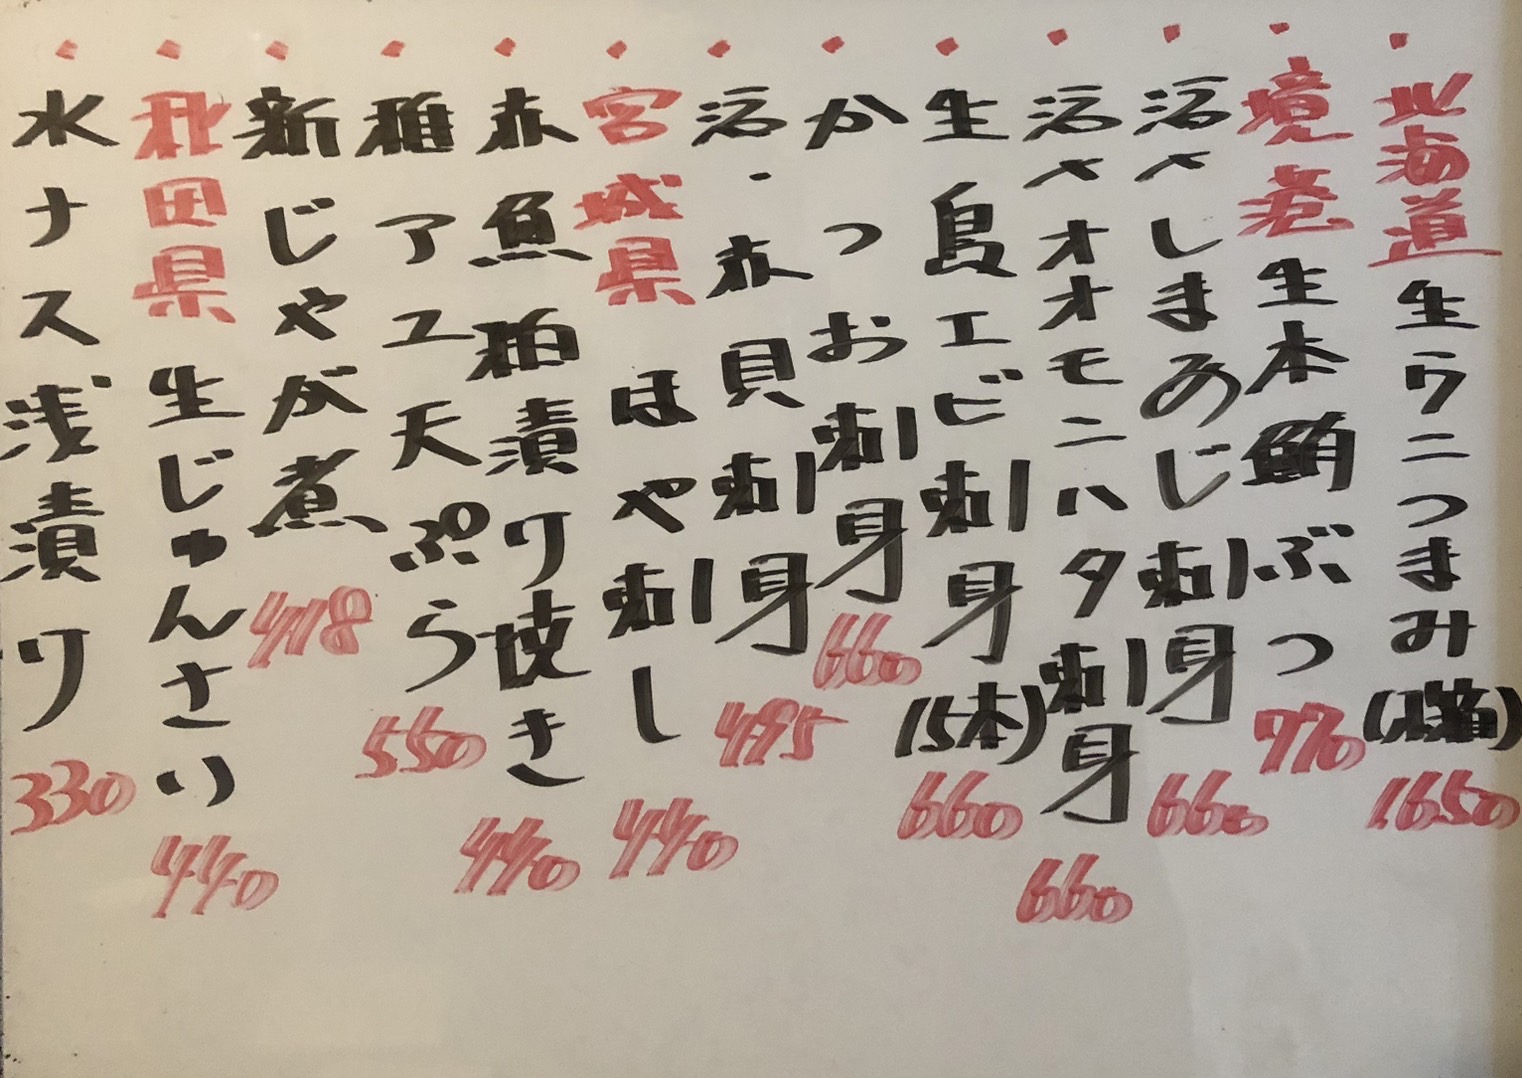 北海道生ウニつまみ(1/2箱)1650
境港生本鮪ぶつ770
活〆しまあじ刺身660
活〆オオモンハタ刺身660
生島エビ刺身(5本)660
かつお刺身660
活・赤貝刺身495
宮城県ほや刺し440
赤魚粕漬り焼き440
稚アユ天ぷら550
新じゃが煮418
秋田県生じゅんさい440
水ナス浅漬り330